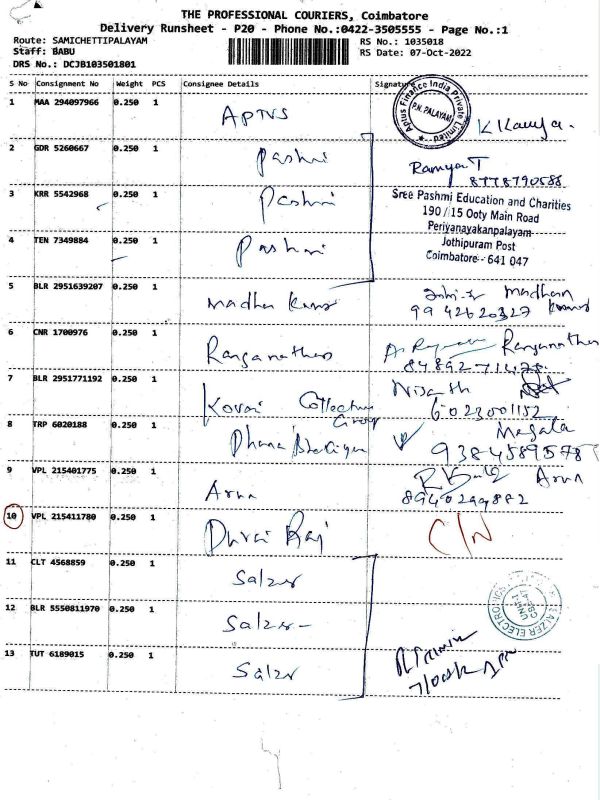 THE PROFESSIONAL COURIERS, Coimbatore
Delivery Runsheet - P20 - Phone No.:0422-3505555 - Page No.:1
Route: SAMICHETTIPALAYAM RS No.: 1035018
Staff: BABU RS Date: 07-Oct-2022
DRS No.: DCJB103501801
S No Consignment No Weight PCS Consignee Details Signature
1 MAA 294097966 0.250 1 APTUS
Aptus Finance India Private Limited
P.N. PALAYAM
K Kavya.
2 GDR 5260667 0.250 1 Pashmi Ramya T
8778790588
3 KRR 5542968 0.250 1 Pashmi
Sree Pashmi Education and Charities
190 / 15 Ooty Main Road
Periyanayakanpalayam
Jothipuram Post
Coimbatore - 641 047
4 TEN 7349884 0.250 1 Pashmi
5 BLR 2951639207 0.250 1 Madhan Kumar Madhan Kumar
9942620327
6 CNR 1700976 0.250 1 Ranganathan Ranganathan
7 BLR 2951771192 0.250 1 Kovai Collection Group Nisanth
6023001152
8 TRP 6020188 0.250 1 Megala
9384589578
9 VPL 215401775 0.250 1 Arun Arun
8940299882
10 VPL 215411780 0.250 1 Durai Raj C/N
11 CLT 4568859 0.250 1 Salzer
12 BLR 5550811970 0.250 1 Salzer
SALZER ELECTRONICS
UNIT
13 TUT 6189015 0.250 1 Salzer